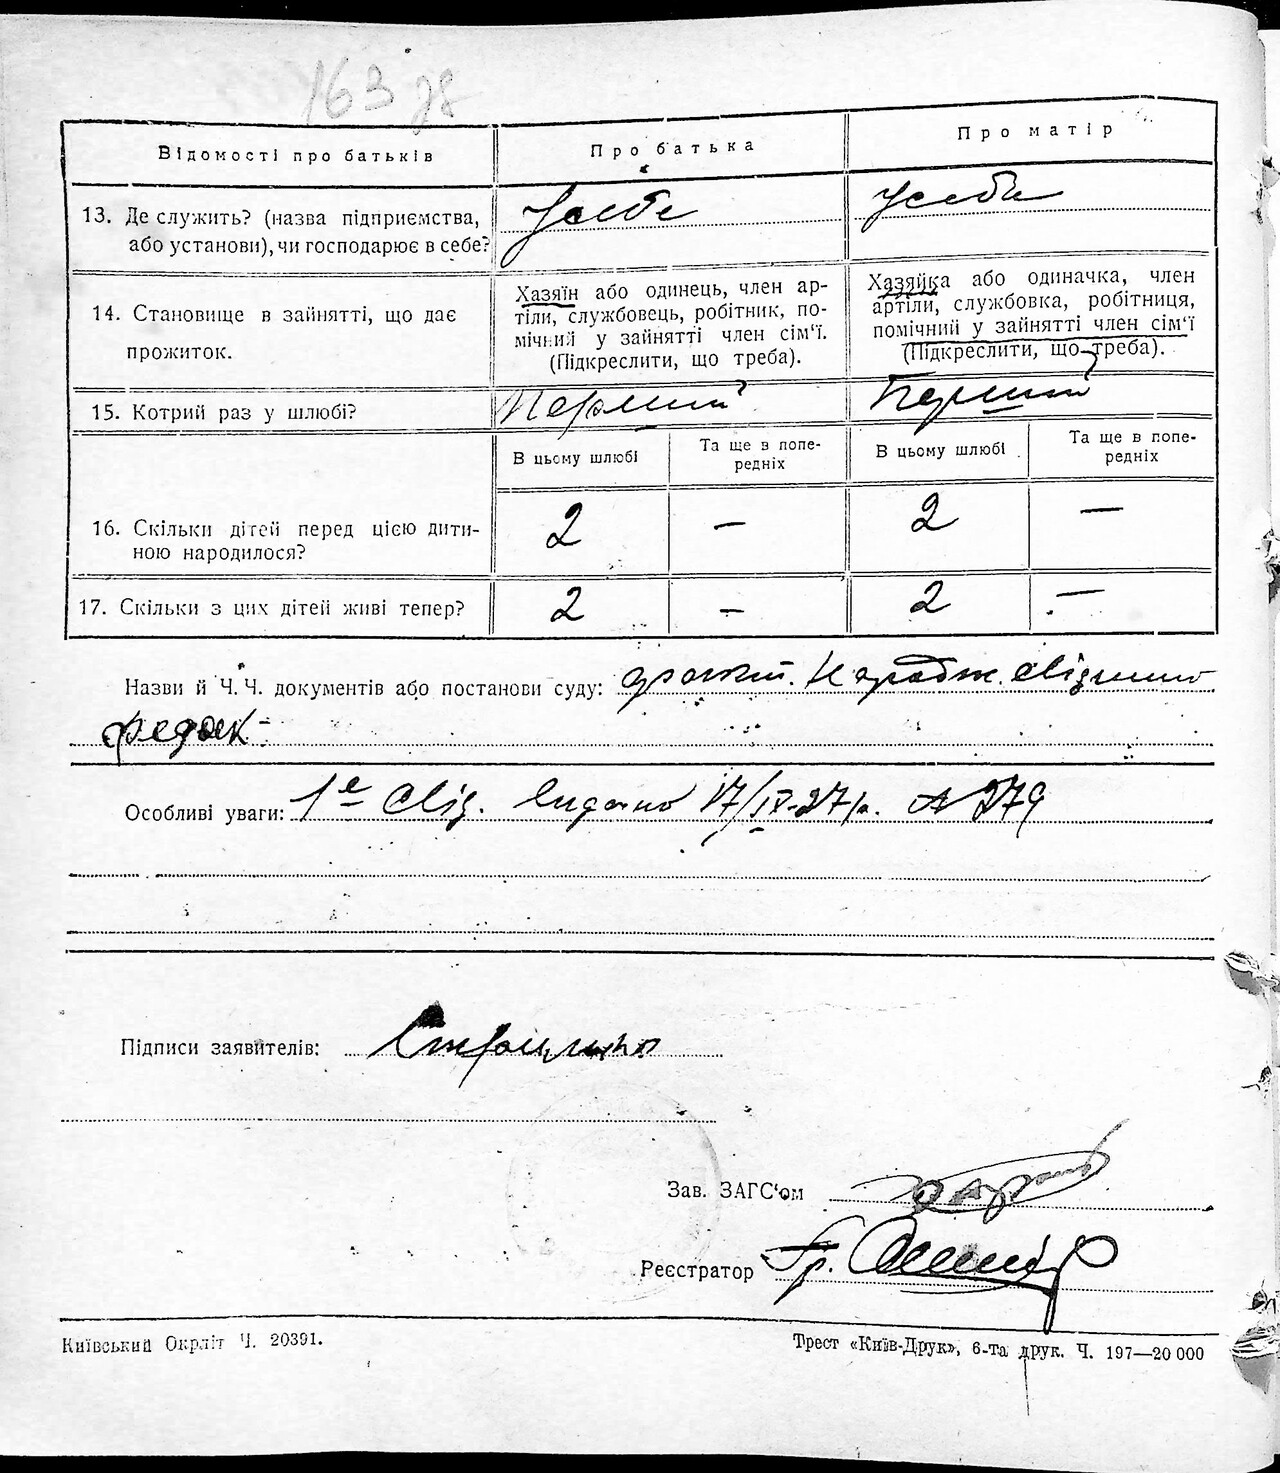 163 зв
Відомості про батьків
Про батька
Про матір
13. Де служить? (назва підприємства, або установи), чи господарює в себе?
У себе
У себе
14. Становище в зайнятті, що дає прожиток.
Хазяїн або одинець, член ар-
тілі, службовець, робітник, по-
мічний у зайнятті член сім'ї.
(Підкреслити, що треба).
Хазяйка або одиначка, член
артіли, службовка, робітниця,
помічний у зайнятті член сім'ї
(Підкреслити, що треба).
15. Котрий раз у шлюбі?
Перший
Перший
В цьому шлюбі
Та ще в попе-
редніх
В цьому шлюбі
Та ще в попе-
редніх
16. Скільки дітей перед цією дити-
ною народилося?
2 — 2 —
17. Скільки з цих дітей живі тепер?
2 — 2 —
Назви й Ч. Ч. документів або постанови суду: Народж.
Особливі уваги: 1е Свід. видано 17/IX-27 р. № 279
Підписи заявителів:
Зав. ЗАГС'ом
Реєстратор Гр.
Київський Окрліт Ч. 20391.
Трест «Київ-Друк», 6-та друк. Ч. 197—20 000